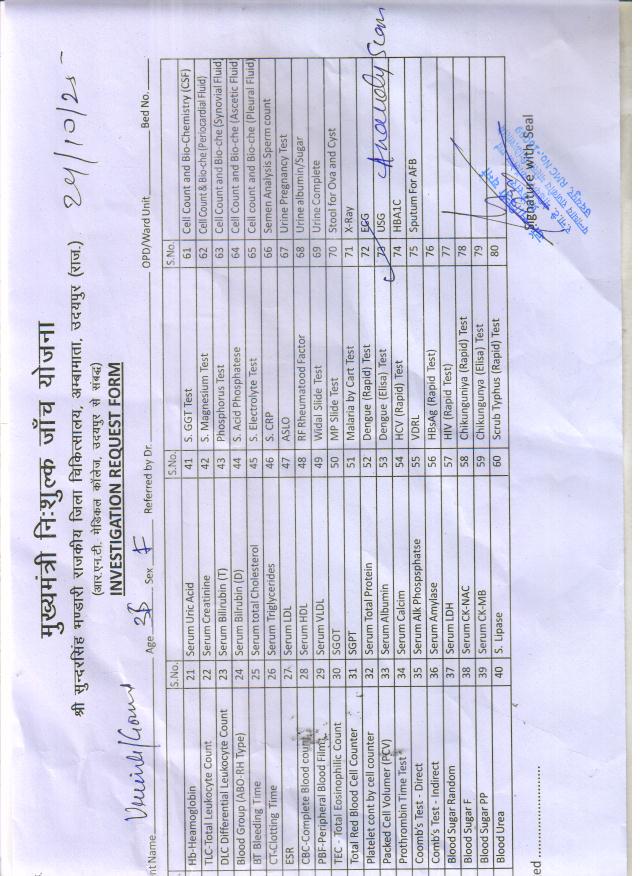 मुख्यमंत्री निःशुल्क जाँच योजना
श्री सुन्दरसिंह भण्डारी राजकीय जिला चिकित्सालय, अम्बामाता, उदयपुर (राज.)
(आर.एन.टी. मेडिकल कॉलेज, उदयपुर से संबद्ध)
INVESTIGATION REQUEST FORM
24/10/25
nt Name Age Sex F Referred by Dr. OPD/Ward Unit Bed No.
S.No. S.No. S.No.
Hb-Heamoglobin 21 Serum Uric Acid 41 S. GGT Test 61 Cell Count and Bio-Chemistry (CSF)
TLC-Total Leukocyte Count 22 Serum Creatinine 42 S. Magnesium Test 62 Cell Count & Bio-che (Periocardial Fluid)
DLC Differential Leukocyte Count 23 Serum Billrubin (T) 43 Phosphorus Test 63 Cell Count and Bio-che (Synovial Fluid)
Blood Group (ABO-RH Type) 24 Serum Bilrubin (D) 44 S. Acid Phosphatese 64 Cell Count and Bio-che (Ascetic Fluid)
BT Bleeding Time 25 Serum total Cholesterol 45 S. Electrolyte Test 65 Cell count and Bio-che (Pleural Fluid)
CT-Clotting Time 26 Serum Triglycerides 46 S. CRP 66 Semen Analysis Sperm count
ESR 27 Serum LDL 47 ASLO 67 Urine Pregnancy Test
CBC-Complete Blood count 28 Serum HDL 48 RF Rheumatood Factor 68 Urine albumin/Sugar
PBF-Peripheral Blood Film 29 Serum VLDL 49 Widal Slide Test 69 Urine Complete
TEC - Total Eosinophillic Count 30 SGOT 50 MP Slide Test 70 Stool for Ova and Cyst
Total Red Blood Cell Counter 31 SGPT 51 Malaria by Cart Test 71 X-Ray
Platelet cont by cell counter 32 Serum Total Protein 52 Dengue (Rapid) Test 72 ECG
Packed Cell Volumer (PCV) 33 Serum Albumin 53 Dengue (Elisa) Test 73 USG Anamoly Scan
Prothrombin Time Test 34 Serum Calcim 54 HCV (Rapid) Test 74 HBA1C
Coomb's Test - Direct 35 Serum Alk Phospsphatse 55 VDRL 75 Sputum For AFB
Comb's Test - Indirect 36 Serum Amylase 56 HBsAg (Rapid Test) 76
Blood Sugar Random 37 Serum LDH 57 HIV (Rapid) Test 77
Blood Sugar F 38 Serum CK-NAC 58 Chikungunya (Rapid) Test 78
Blood Sugar PP 39 Serum CK-MB 59 Chikungunya (Elisa) Test 79
Blood Urea 40 S. Lipase 60 Scrub Typhus (Rapid) Test 80
ed ....................
Signature with Seal